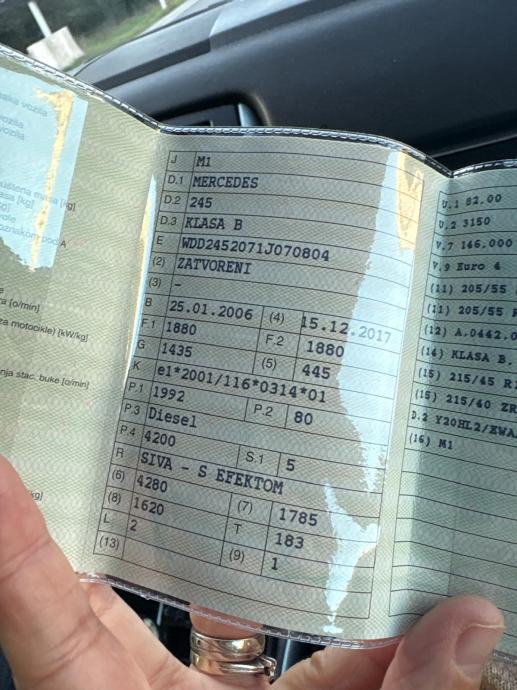 vozila
[kg]
asa [kg]
A
[o/min]
za motocikle) [kW/kg]
nja stac. buke [o/min]
[kg]
J M1
D.1 MERCEDES
D.2 245
D.3 KLASA B
E WDD2452071J070804
(2) ZATVORENI
(3) -
B 25.01.2006 (4) 15.12.2017
F.1 1880 F.2 1880
G 1435 (5) 445
K e1*2001/116*0314*01
P.1 1992 P.2 80
P.3 Diesel
P.4 4200 S.1 5
R SIVA - S EFEKTOM
(6) 4280 (7) 1785
(8) 1620 T 183
L 2 (9) 1
(13)
U.1 82.00
U.2 3150
V.7 146.000
V.9 Euro 4
(11) 205/55
(11) 205/55 R
(12) A.0442.0
(14) KLASA B.
(15) 215/45 R1
(15) 215/40 ZR
D.2 Y20HL2/KWA
(16) M1